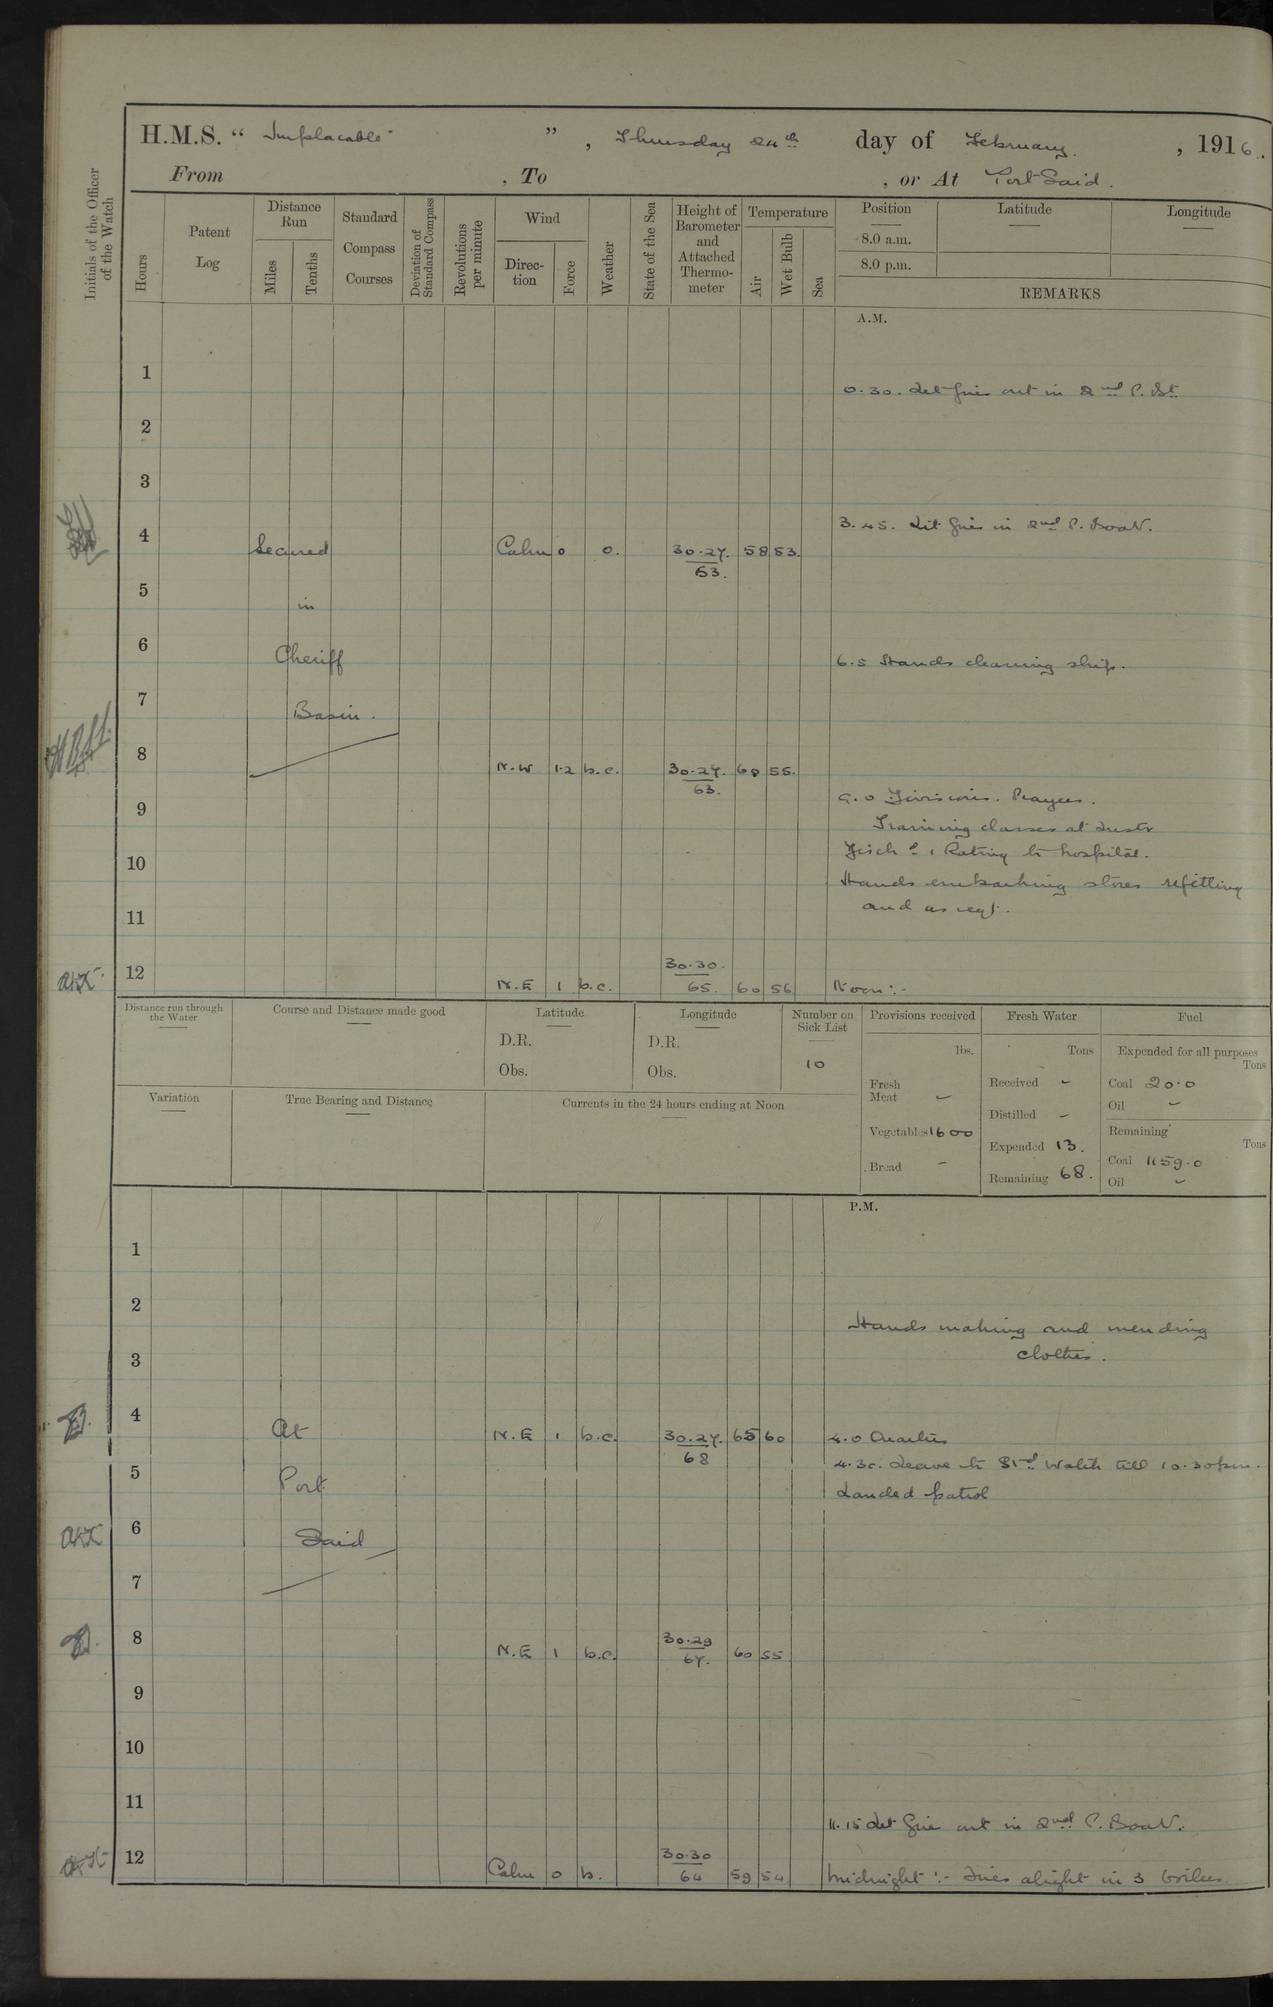 H.M.S. “ Implacable ” , Thursday 24th day of February , 1916.
From , To , or At Port Said.
Initials of the Officer of the Watch
Hours
Patent Log
Distance Run
Miles
Tenths
Standard Compass Courses
Deviation of Standard Compass
Revolutions per minute
Wind
Direction
Force
Weather
State of the Sea
Height of Barometer and Attached Thermometer
Temperature
Air
Wet Bulb
Sea
Position
8.0 a.m.
8.0 p.m.
Latitude
Longitude
REMARKS
A.M.
1
0.30. Let fires out in 2nd P. Bt.
2
3
3.45. Lit fires in 2nd P. Boat.
4 Secured Calm 0 o. 30.27. 58 53.
63.
5 in
6 Cheriff 6.5 Hands cleaning ship.
7 Basin.
8 N.W 1.2 b.c. 30.27. 60 55.
63.
9 9.0 Divisions. Prayers.
Training classes at Instr
10 Disch d 1 Rating to hospital.
Hands embarking stores refitting
11 and as reqd.
12 N.E 1 b.c. 30.30. 60 56 Noon :-
65.
Distance run through the Water
Course and Distance made good
Latitude
D.R.
Obs.
Longitude
D.R.
Obs.
Number on Sick List
10
Provisions received
lbs.
Fresh Meat -
Vegetables 1600
Bread -
Fresh Water
Tons
Received -
Distilled -
Expended 13.
Remaining 68.
Fuel
Expended for all purposes
Tons
Coal 20.0
Oil -
Remaining
Tons
Coal 1159.0
Oil -
Variation
True Bearing and Distance
Currents in the 24 hours ending at Noon
P.M.
1
2
Hands making and mending
3 clothes.
4 At N.E 1 b.c. 30.27. 65 60 4.0 Quarters
68
4.30. Leave to Std Watch till 10.30pm.
5 Port Landed patrol
6 Said
7
8 N.E 1 b.c. 30.29 60 55
67.
9
10
11
11.15 Let fires out in 2nd P. Boat.
12 Calm 0 b. 30.30 59 54 Midnight :- Fires alight in 3 boilers
64